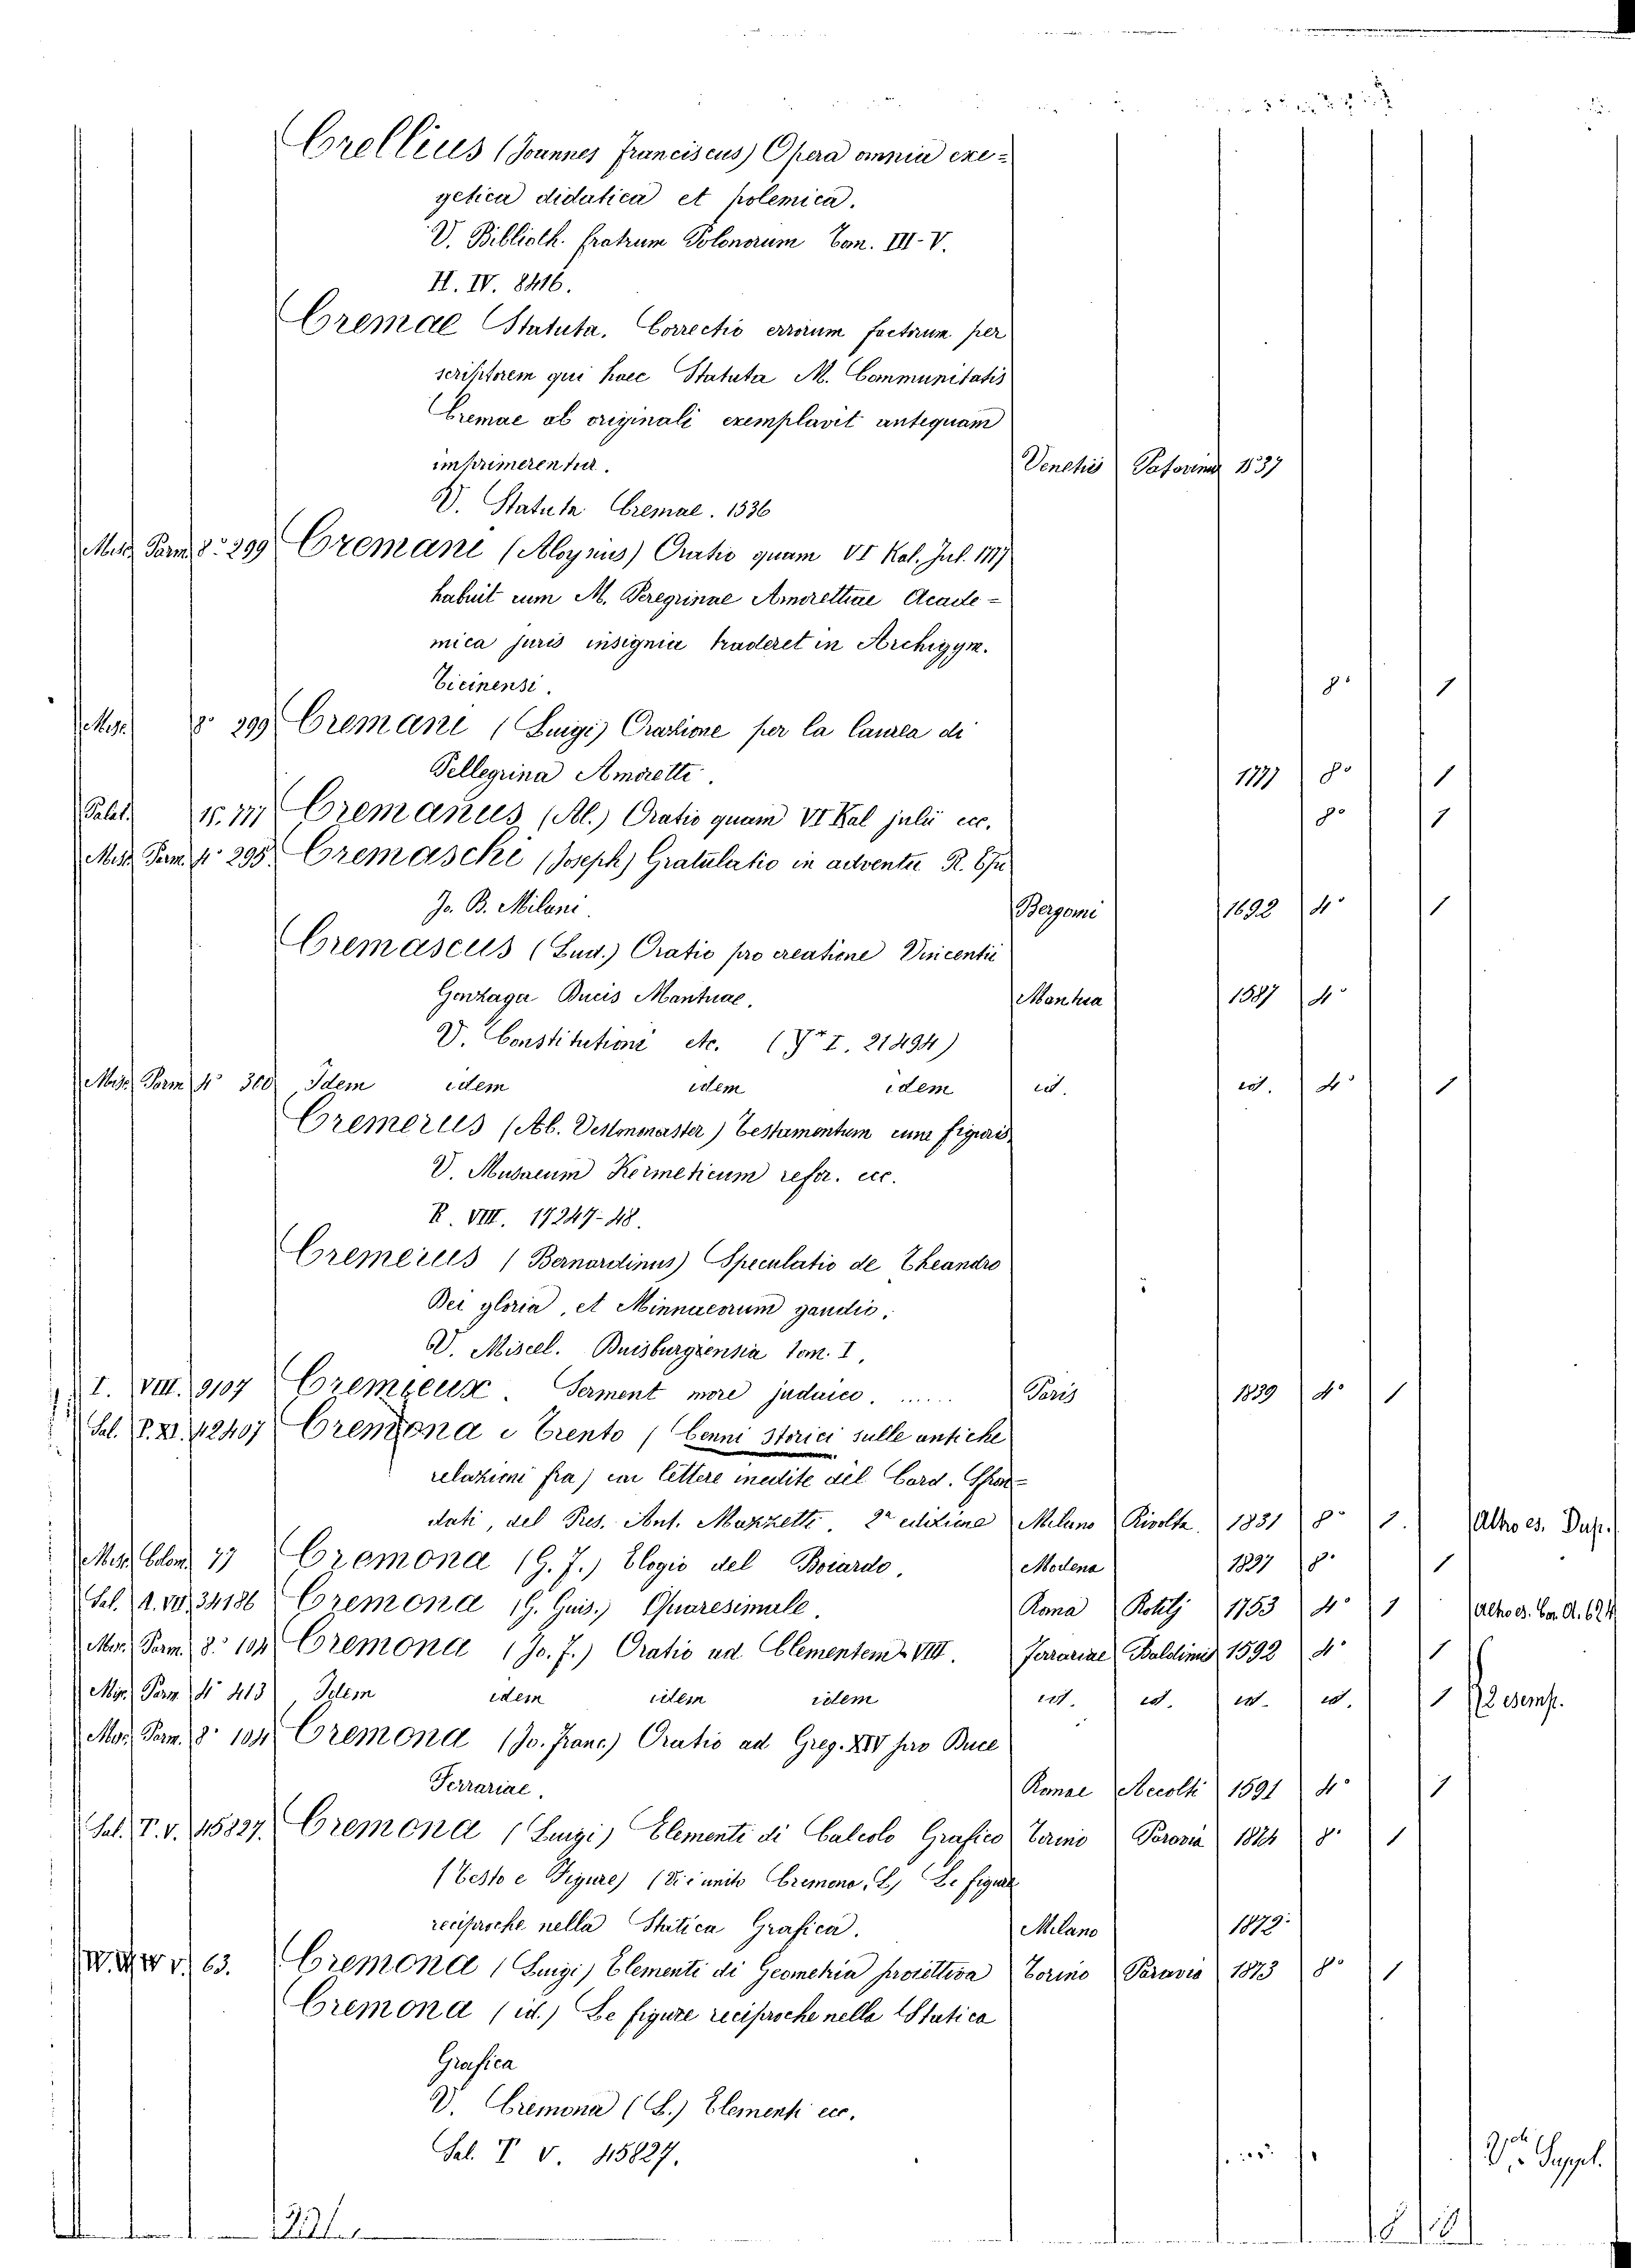 Crellius (Joannes Franciscus) Opera omnia exe=
getica didatica et polemica.
V. Biblioth. fratrum Polonorum Tom. III-V.
H. IV. 8416.
Cremae Statuta. Correctio errorum factorum per
scriptorem qui haec Statuta M. Communitatis
Cremae ab originali exemplavit antequam
imprimerentur. Venetiis 1537
V. Statuta Cremae. 1536
Misc. Parm. 8º 299 Cremani (Aloysius) Oratio quam VI Kal. Jul. 1777
habuit cum M. Peregrinae Amorettiae Acade=
mica juris insignia traderet in Archigym.
Ticinensi. 8º 1
Misc. 8º 299 Cremani (Luigi) Orazione per la laurea di
Pellegrina Amoretti. 1777 8º 1
Palat. 15.777 Cremanus (Al.) Oratio quam VI Kal julii ecc. 8º 1
Misc. Parm. 4º 295. Cremaschi (Joseph) Gratulatio in adventu R.
Jo. B. Milani. Bergomi 1692 4º 1
Cremascus (Lud.) Oratio pro creatione Vincentii
Gonzaga Ducis Mantuae. Mantua 1587 4º
V. Constitutioni etc. (I. 21494)
Misc. Parm 4º 310 Idem idem idem idem id. id. 4º 1
Cremerus (Ab. Vestmonaster) Testamentum cum figuris
V. Musaeum Hermeticum refor. ecc.
R. VIII. 17247-48.
Cremerius (Bernardinus) Speculatio de Theandro
Dei gloria, et Minnacorum gaudio.
V. Miscel. Duisburgensia tom. I.
I. VIII. 9107 Cremieux. Serment more judaico....... Paris 1839 4º 1
Sal. P. XI. 42407 Cremona e Trento (Cenni storici sulle antiche
relazioni fra) con lettere inedite del Card. Sfon=
dati, del Pres. Ant. Mazzetti. 2ª edizione Milano Rivolta. 1831 8º 1. Altro es. Dup.
Misc. Colom. 77 Cremona (G. J.) Elogio del Boiardo. Modena 1827 8º 1
Sal. A. VII. 34186 Cremona (G. Gius.) Quaresimale. Roma 1753 4º 1
Misc. Parm. 8º 104 Cremona (Jo. F.) Oratio ad Clementem VIII. Ferrariae Baldinus 1592 4º 1
Misc. Parm. 4º 413 Idem idem idem idem id. id. id. id. 1 2 esemp.
Misc. Parm. 8º 104 Cremona (Jo. Franc.) Oratio ad Greg. XIV pro Duce
Ferrariae. Romae Accolti 1591 4º 1
Sal. T. V. 45827. Cremona (Luigi) Elementi di Calcolo Grafico Torino Paravia 1874 8º 1
(Testo e Figure) (Vi è unito Cremona, L) Le figure
reciproche nella Statica Grafica. Milano 1879.
V. 63. Cremona (Luigi) Elementi di Geometria proiettiva Torino Paravia 1873 8º 1
Cremona (id.) Le figure reciproche nella Statica
Grafica
V. Cremona (L.) Elementi ecc.
Sal. T V. 45827.
Suppl.